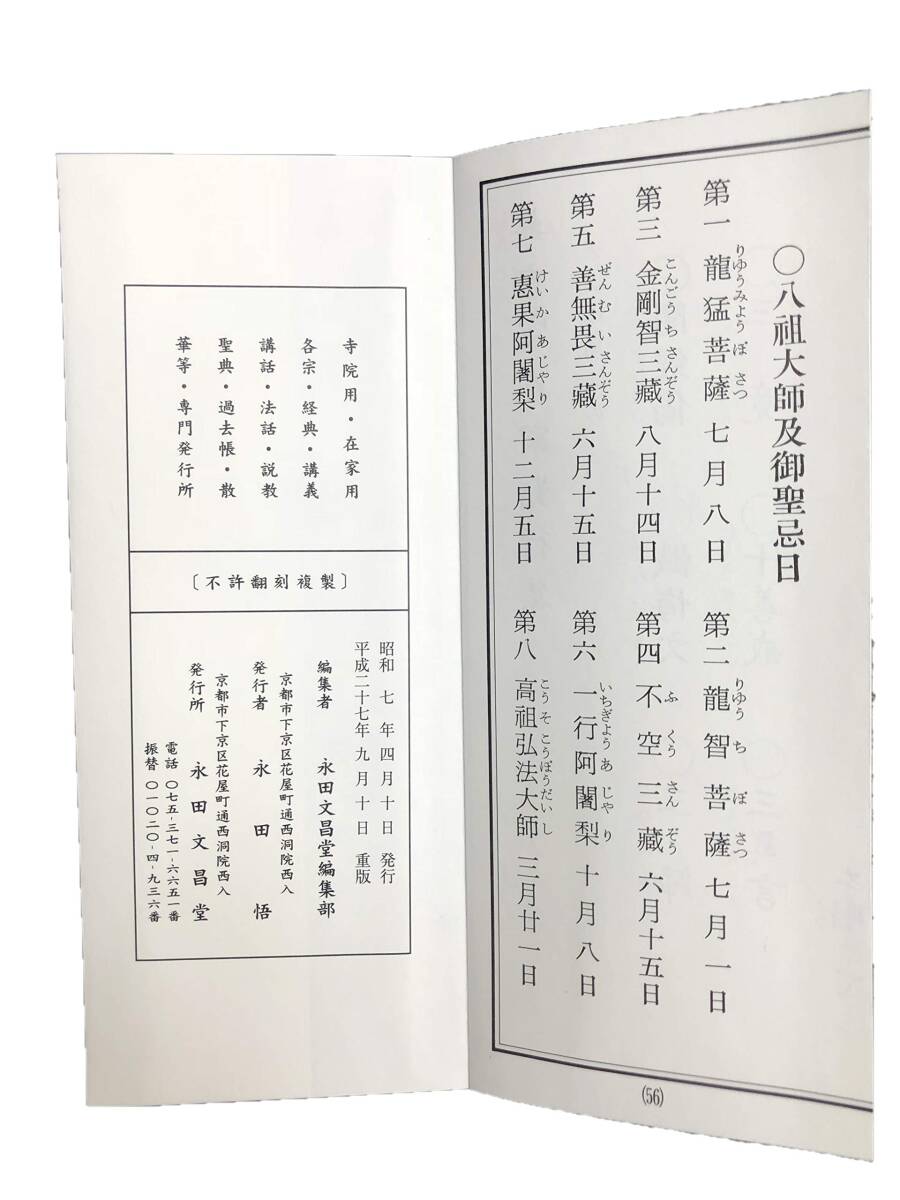 ○八祖大師及御聖忌日
第一 龍猛菩薩 七月八日
りゆうみよう ぼ さつ
第二 龍智菩薩 七月一日
りゆう ち ぼ さつ
第三 金剛智三藏 八月十四日
こんごう ち さんぞう
第四 不空三藏 六月十五日
ふ くう さん ぞう
第五 善無畏三藏 六月十五日
ぜん む い さんぞう
第六 一行阿闍梨 十月八日
いちぎよう あ じゃ り
第七 惠果阿闍梨 十二月五日
けい か あ じゃ り
第八 高祖弘法大師 三月廿一日
こう そ こうぼうだい し
(56)
寺院用・在家用
各宗・経典・講義
講話・法話・説教
聖典・過去帳・散
華等・専門発行所
〔不許翻刻複製〕
昭和 七 年 四月十日 発行
平成二十七年 九月十日 重版
編集者 永田文昌堂編集部
京都市下京区花屋町通西洞院西入
発行者 永田 悟
京都市下京区花屋町通西洞院西入
発行所 永田文昌堂
電話 〇七五-三七一-六六五一番
振替 〇一〇二〇-四-九三六番